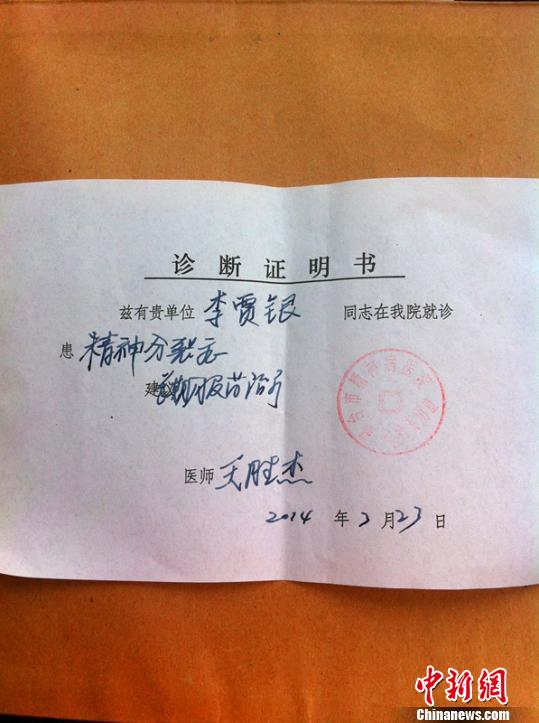 诊断证明书
兹有贵单位 李贾银 同志在我院就诊
患 精神分裂症
建议 长期服药治疗
医师 王胜杰
2014 年 2 月 23 日
中新網
Chinanews.com